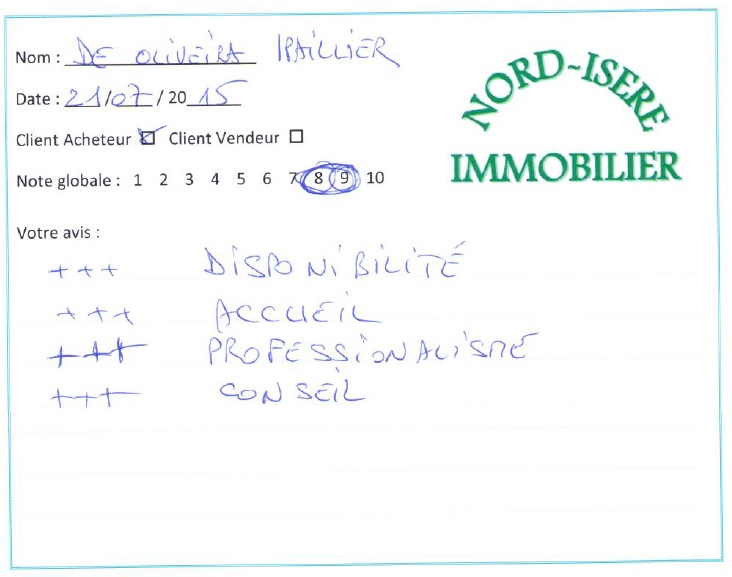 Nom : DE OLIVEIRA IPAILLIER
Date : 21/07/2015
Client Acheteur ☑ Client Vendeur ☐
Note globale : 1 2 3 4 5 6 7 8 9 10
NORD-ISERE
IMMOBILIER
Votre avis :
+++ DISPONIBILITÉ
+++ ACCUEIL
+++ PROFESSIONALISME
+++ CONSEIL